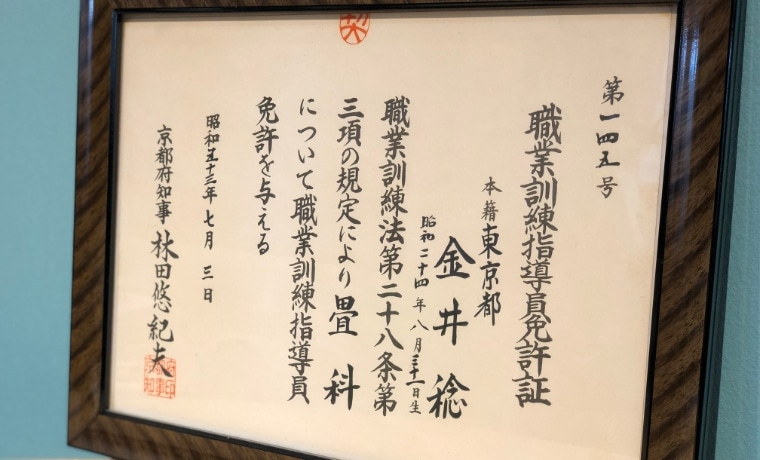 第一四五号
職業訓練指導員免許証
本籍 東京都
金井稔
昭和二十四年八月三十一日生
職業訓練法第二十八条第
三項の規定により畳科
について職業訓練指導員
免許を与える
昭和五十三年七月三日
京都府知事 林田悠紀夫